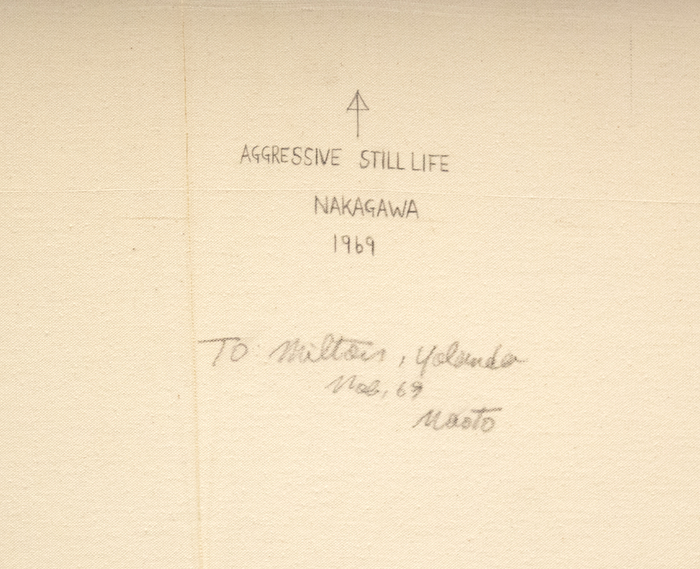 AGGRESSIVE STILL LIFE
NAKAGAWA
1969
To Milton, Yolanda
Nov, 69
Naoto